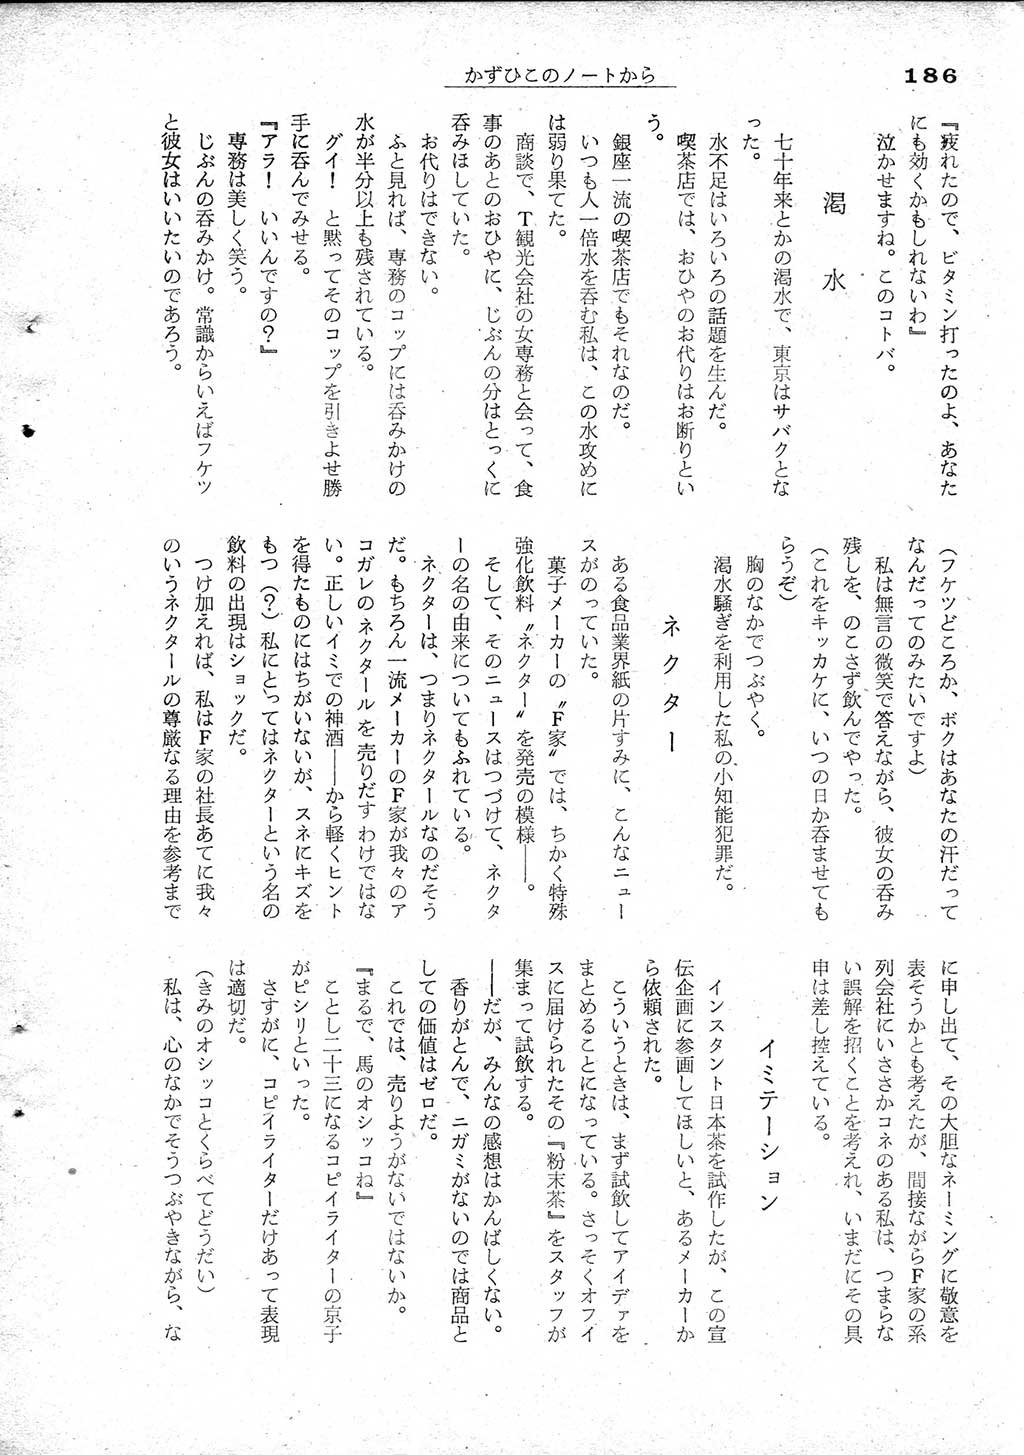 186
かずひこのノートから
『疲れたので、ビタミン打ったのよ、あなた
にも効くかもしれないわ』
泣かせますね。このコトバ。
渇水
七十年来とかの渇水で、東京はサバクとな
った。
水不足はいろいろの話題を生んだ。
喫茶店では、おひやのお代りはお断りとい
う。
銀座一流の喫茶店でもそれなのだ。
いつも人一倍水を呑む私は、この水攻めに
は弱り果てた。
商談で、T観光会社の女専務と会って、食
事のあとのおひやに、じぶんの分はとっくに
呑みほしていた。
お代りはできない。
ふと見れば、専務のコップには呑みかけの
水が半分以上も残されている。
グイ!　と黙ってそのコップを引きよせ勝
手に呑んでみせる。
『アラ!　いいんですの?』
専務は美しく笑う。
じぶんの呑みかけ。常識からいえばフケツ
と彼女はいいたいのであろう。
(フケツどころか、ボクはあなたの汗だって
なんだってのみたいですよ)
私は無言の微笑で答えながら、彼女の呑み
残しを、のこさず飲んでやった。
(これをキッカケに、いつの日か呑ませても
らうぞ)
胸のなかでつぶやく。
渇水騒ぎを利用した私の小知能犯罪だ。
ネクター
ある食品業界紙の片すみに、こんなニュー
スがのっていた。
菓子メーカーの〝F家〟では、ちかく特殊
強化飲料〝ネクター〟を発売の模様――。
そして、そのニュースはつづけて、ネクタ
ーの名の由来についてもふれている。
ネクターは、つまりネクタールなのだそう
だ。もちろん一流メーカーのF家が我々のア
コガレのネクタールを売りだすわけではな
い。正しいイミでの神酒――から軽くヒント
を得たものにはちがいないが、スネにキズを
もつ(?)私にとってはネクターという名の
飲料の出現はショックだ。
つけ加えれば、私はF家の社長あてに我々
のいうネクタールの尊厳なる理由を参考まで
に申し出て、その大胆なネーミングに敬意を
表そうかとも考えたが、間接ながらF家の系
列会社にいささかコネのある私は、つまらな
い誤解を招くことを考えれ、いまだにその具
申は差し控えている。
イミテーション
インスタント日本茶を試作したが、この宣
伝企画に参画してほしいと、あるメーカーか
ら依頼された。
こういうときは、まず試飲してアイデァを
まとめることになっている。さっそくオフイ
スに届けられたその『粉末茶』をスタッフが
集まって試飲する。
――だが、みんなの感想はかんばしくない。
香りがとんで、ニガミがないのでは商品と
しての価値はゼロだ。
これでは、売りようがないではないか。
『まるで、馬のオシッコね』
ことし二十三になるコピイライターの京子
がピシリといった。
さすがに、コピイライターだけあって表現
は適切だ。
(きみのオシッコとくらべてどうだい)
私は、心のなかでそうつぶやきながら、な